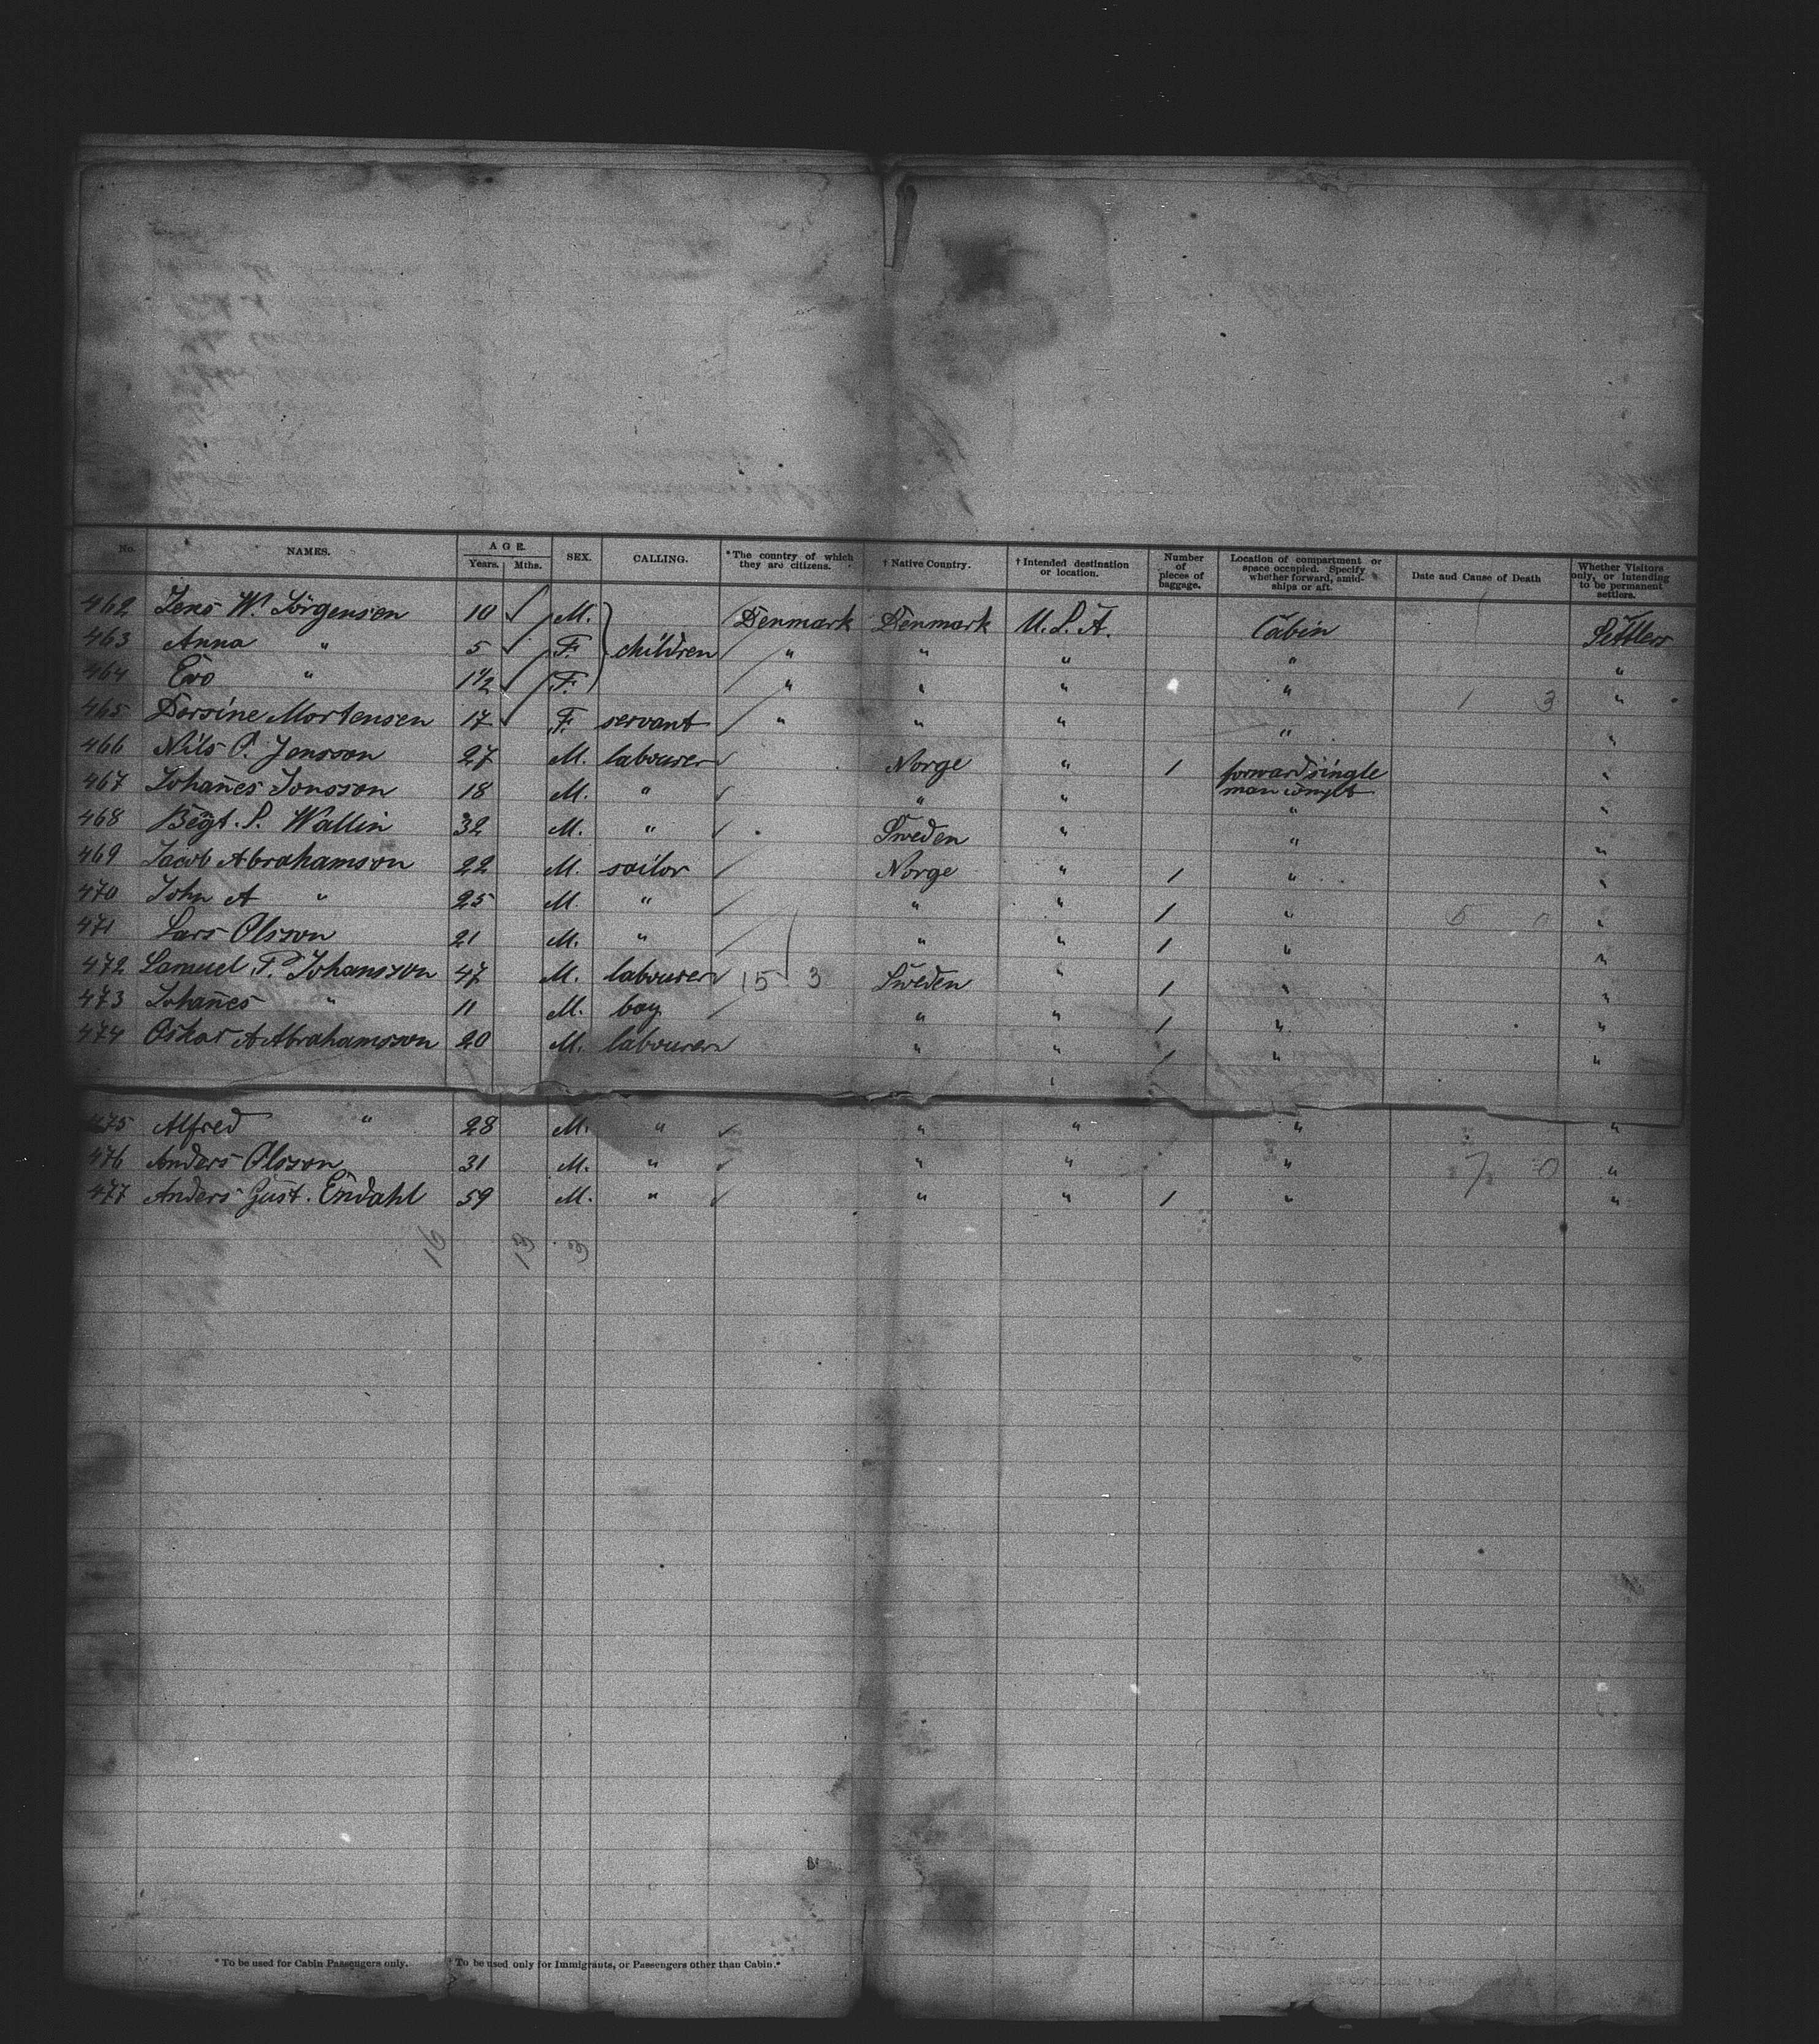 No. NAMES. AGE. Years. Mths. SEX. CALLING. *The country of which they are citizens. † Native Country. † Intended destination or location. Number of pieces of baggage. Location of compartment or space occupied. Specify whether forward, amidships or aft. Date and Cause of Death Whether Visitors only, or intending to be permanent settlers.
462 Jens W. Jörgensen 10 M. Denmark Denmark U.S.A. Cabin Settlers
463 Anna " 5 F. children " " " " "
464 Eva " 1 1/2 F. " " " " 1 3 "
465 Dorsine Mortensen 17 F. servant " " " " "
466 Nils P. Jonsson 27 M. labourer Norge " 1 forward single "
467 Johan̄es Jonsson 18 M. " " " man compt "
468 Bēgt. P. Wallin 32 M. " Sweden " " "
469 Jacob Abrahamson 22 M. sailor Norge " 1 " "
470 John A " 25 M. " " " 1 " 5 0 "
471 Lars Olsson 21 M. " " " 1 " "
472 Samuel P. Johansson 47 M. labourer 15 3 Sweden " 1 " "
473 Johan̄es " 11 M. boy " " 1 " "
474 Oskar A Abrahamsson 20 M. labourer " " 1 " "
475 Alfred " 28 M. " " " " "
476 Anders Olsson 31 M. " " " " 7 0 "
477 Anders Gust. Endahl 59 M. " " " 1 " "
16 13 3
* To be used for Cabin Passengers only. † To be used only for Immigrants, or Passengers other than Cabin.*